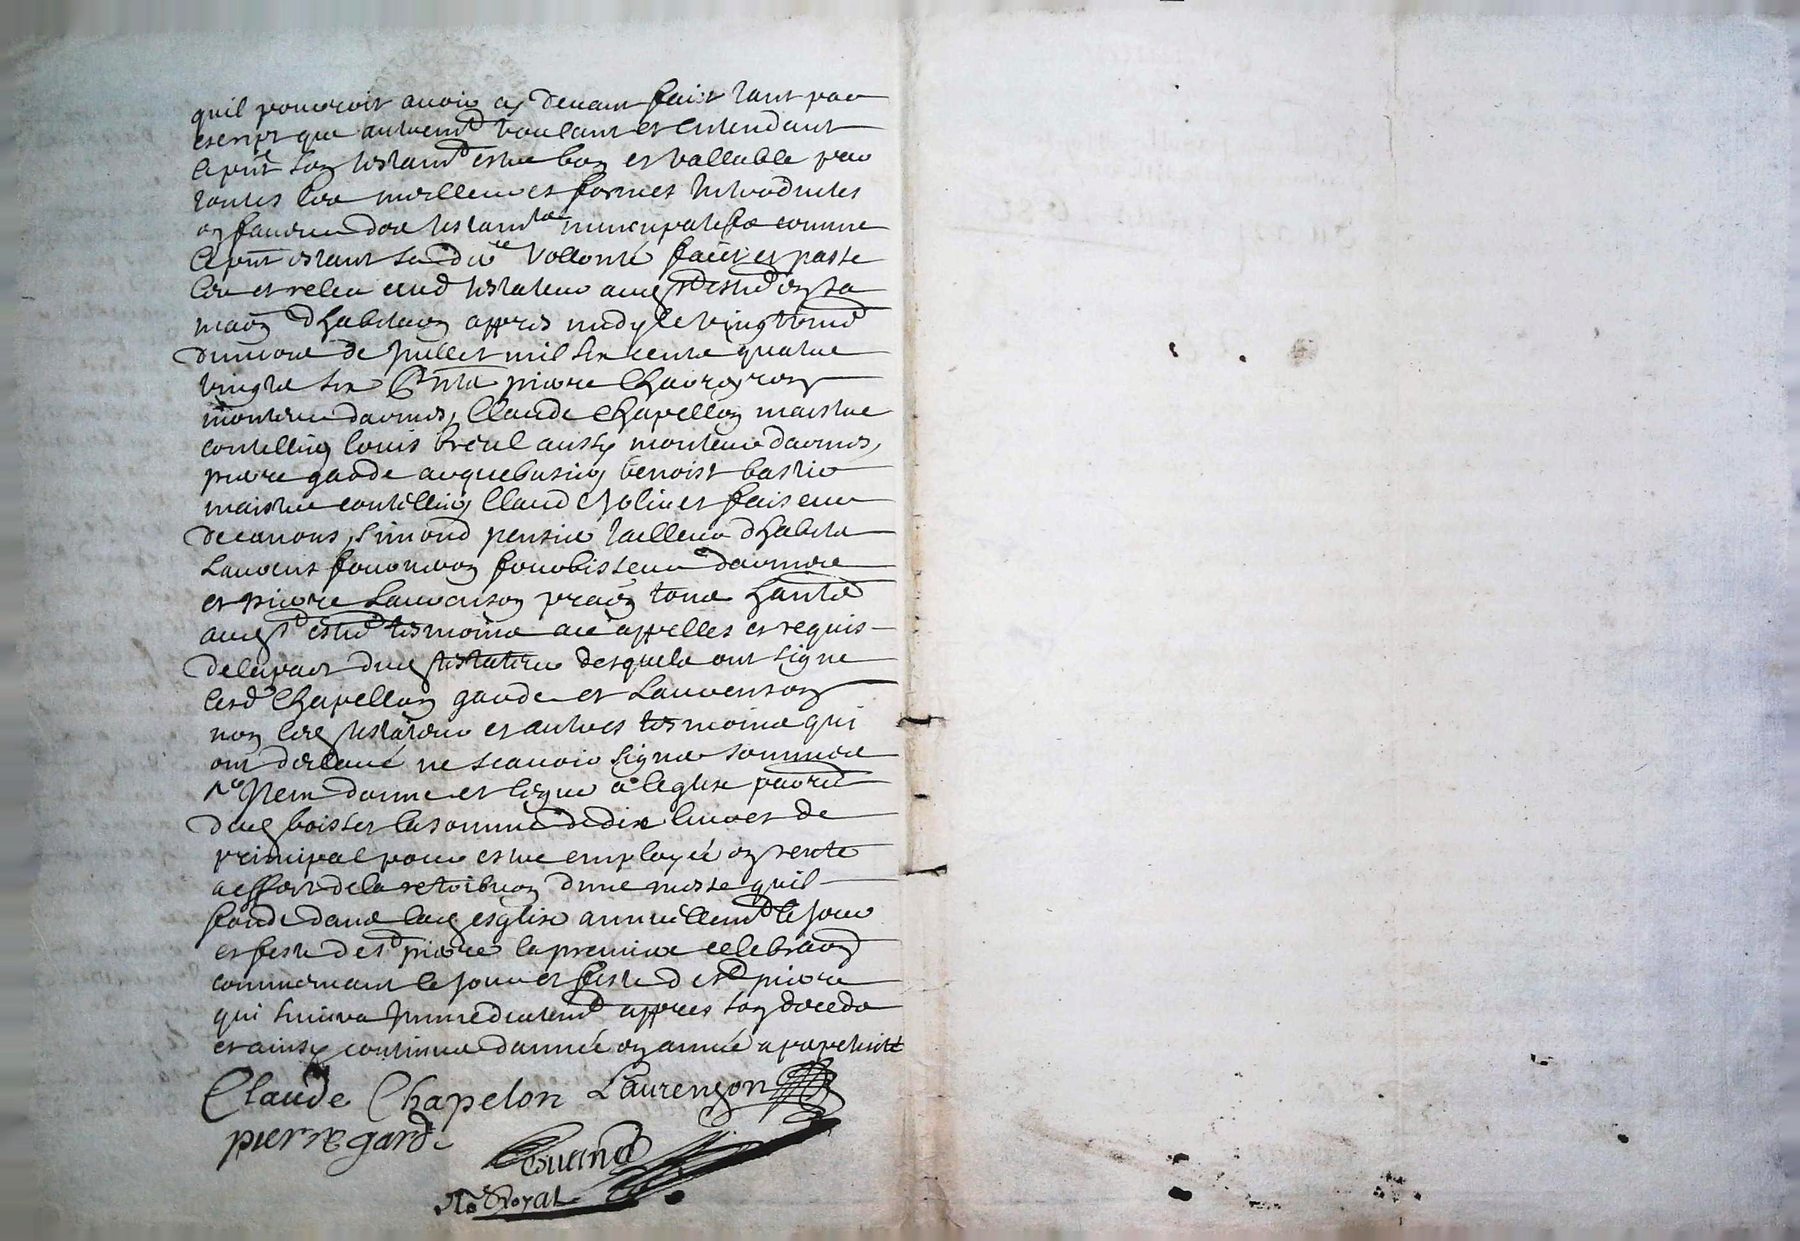 quil pourroit avoir cy devant faict tant par
escript que autremt voulant et entendant
le pnt son testamt estre bon et vallable par
toutes les meilleures formes introduites
en faveur des testamts nuncupatifs comme
le pnt estant sa dre vollonté faict et passé
leu et releu aud testateur aud St Estne en sa
maon dhabitaon appres midy le vingt
du mois de juillet mil six cents quatre
vingts six pnts pierre Chaveyron
monteur darmes, Claude Chapellon maistre
coutellier, louis breul aussy monteur darmes,
pierre garde arquebusier, benoist bastie
maistre coutellier, Claude Joliuet faiseur
de canons, Simond pensie tailleur dhabits
Laurens fournion fourbisseur darmes
et pierre Laurenson pratn tous hantd
aud St Estne tesmoins ace appelles et requis
de la part dud testateur desquels ont signe
lesd Chapellon garde et Laurenson
non led testateur et autres tesmoins qui
ont declaré ne scavoir signer sommés
Item donne et legue a leglise parrlle
dud boisset la somme de dix livres de
principal pour estre employée en rente
a effect de la retribuon dune messe quil
fonde dans lad esglise annuellemt le jour
et feste de st pierre la premiere celebraon
commencant le jour et feste de st pierre
qui suivra immediatemt appres son deceds
et ainsy continuer dannée en année a perpetuité
Claude Chapelon Laurenson
pierre garde
nore Royal